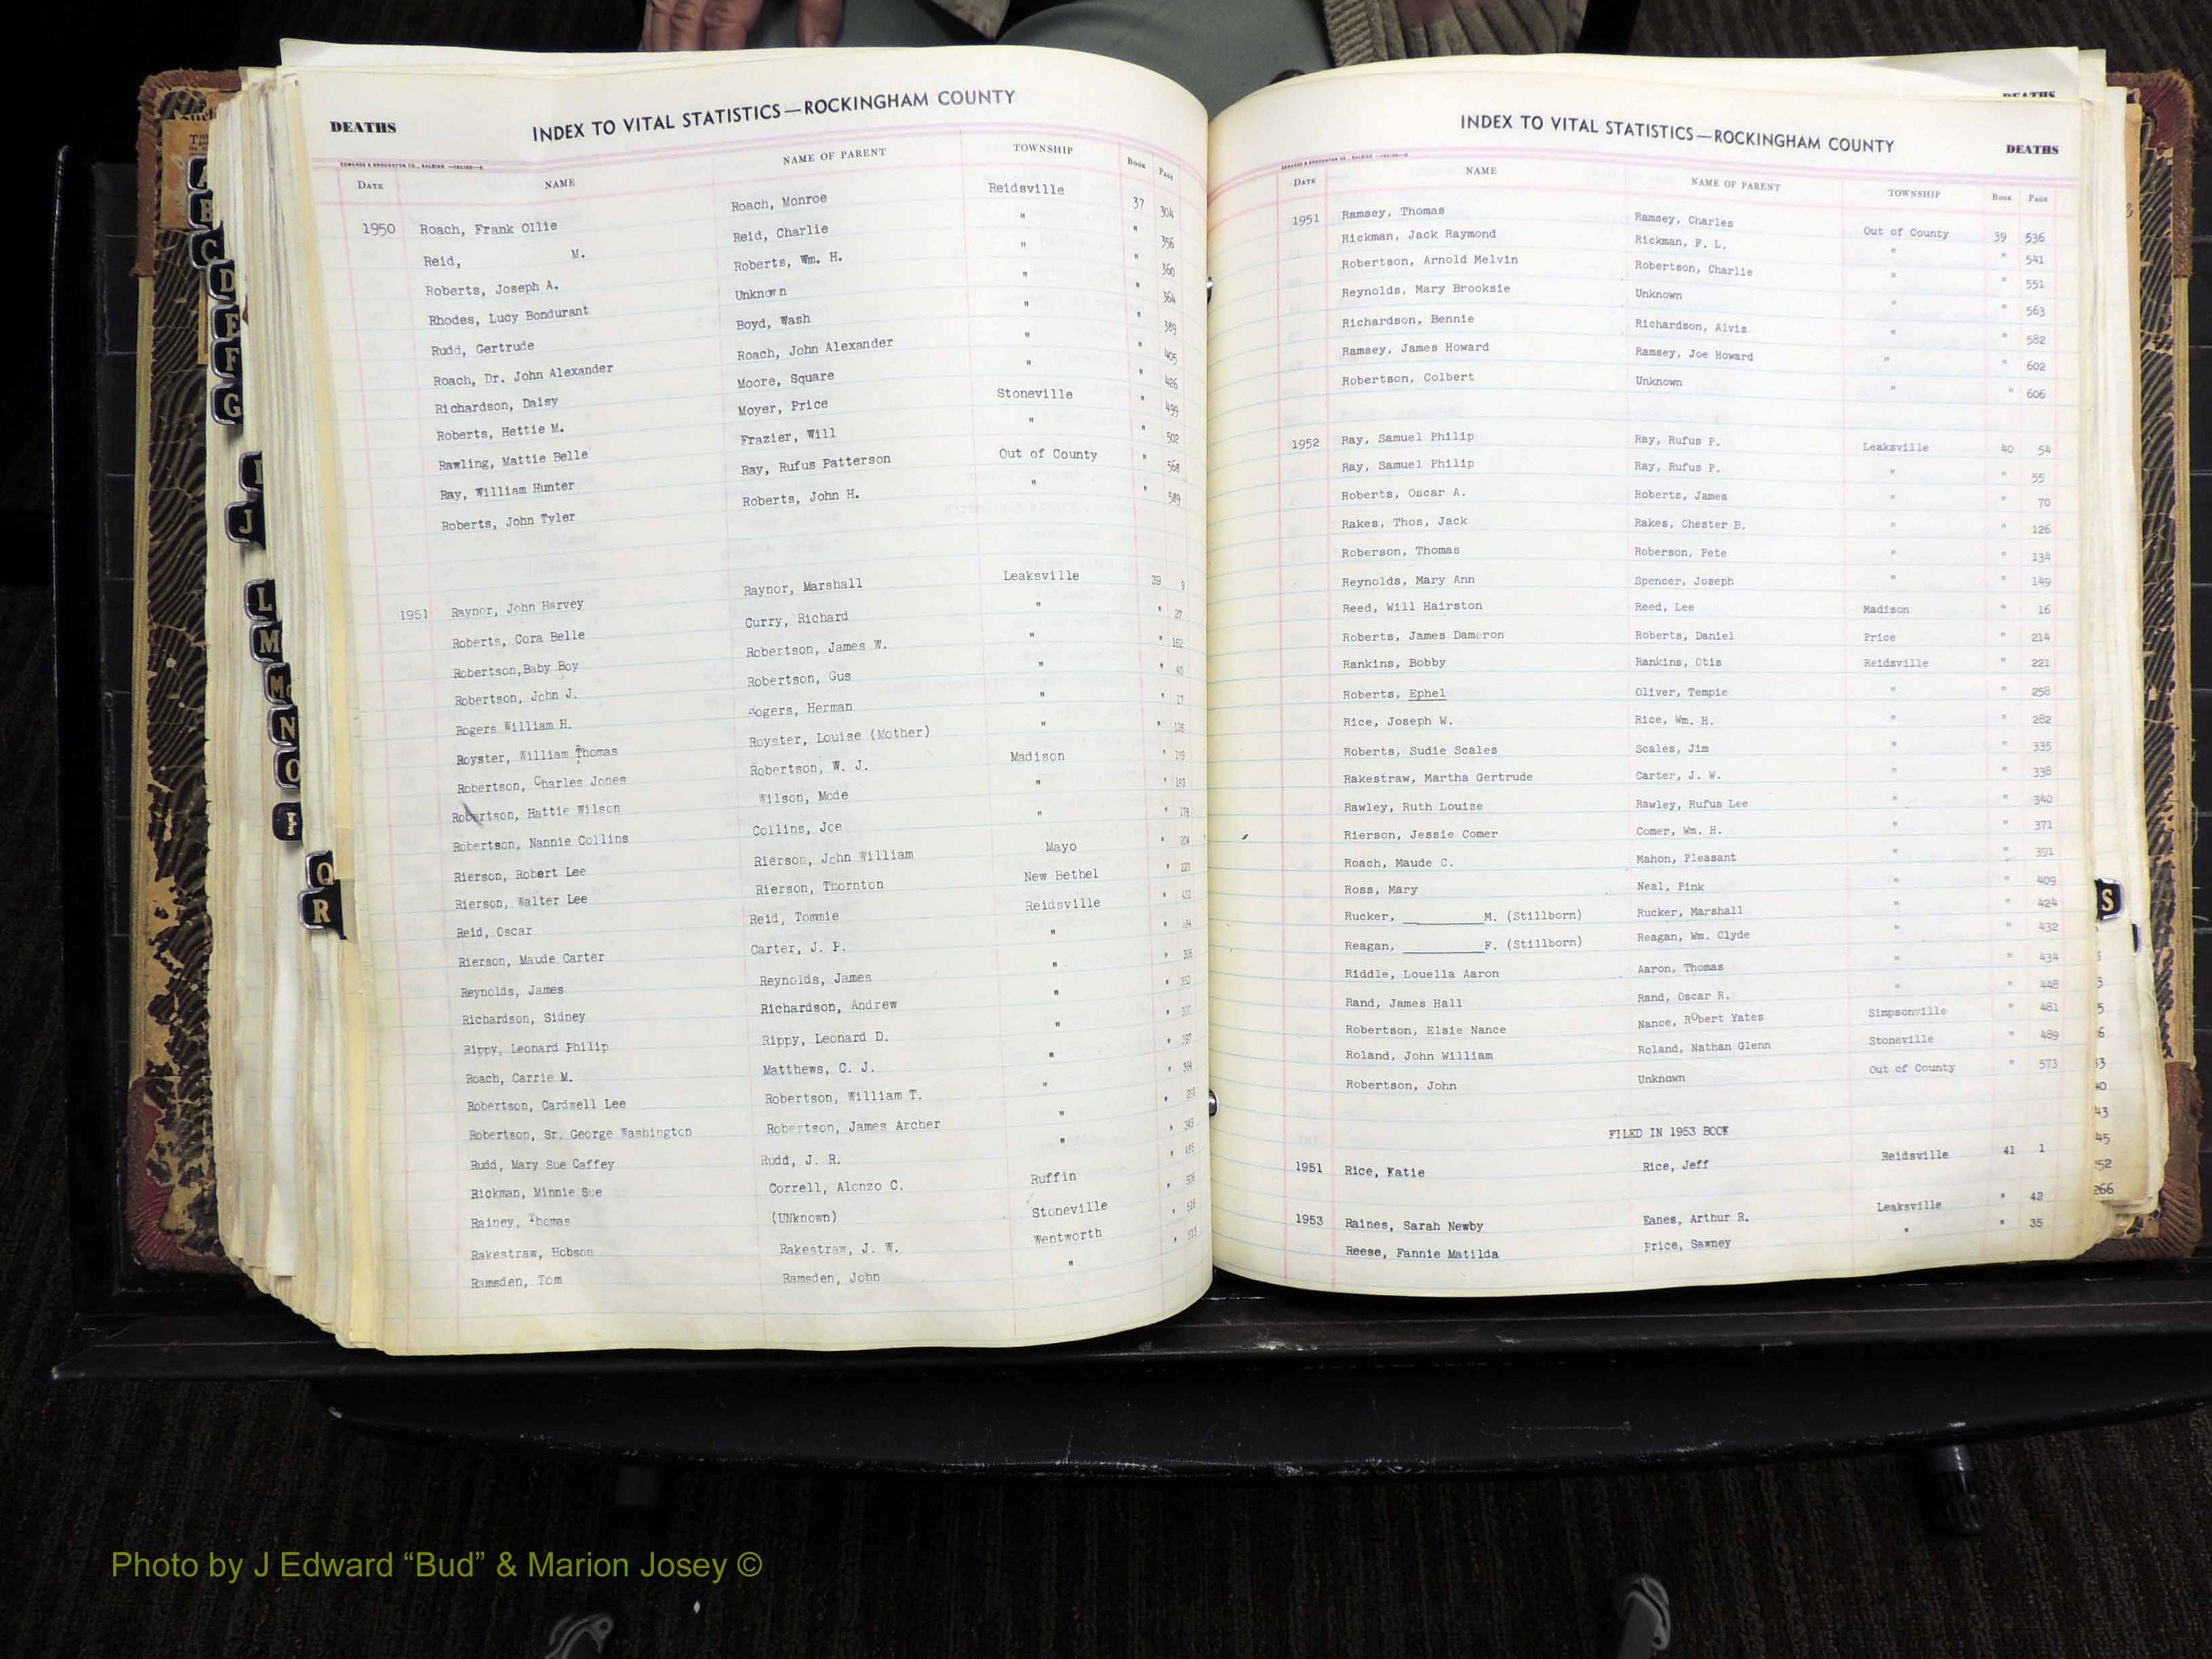 DEATHS
INDEX TO VITAL STATISTICS—ROCKINGHAM COUNTY
DATE NAME NAME OF PARENT TOWNSHIP BOOK PAGE
1950 Roach, Frank Ollie Roach, Monroe Reidsville 37 304
Reid, M. Reid, Charlie " " 356
Roberts, Joseph A. Roberts, Wm. H. " " 360
Rhodes, Lucy Bondurant Unknown " " 364
Rudd, Gertrude Boyd, Wash " " 389
Roach, Dr. John Alexander Roach, John Alexander " " 405
Richardson, Daisy Moore, Square " " 426
Roberts, Hettie M. Moyer, Price Stoneville " 499
Rawling, Mattie Belle Frazier, Will " " 502
Ray, William Hunter Ray, Rufus Patterson Out of County " 568
Roberts, John Tyler Roberts, John H. " " 589
1951 Raynor, John Harvey Raynor, Marshall Leaksville 39 9
Roberts, Cora Belle Curry, Richard " " 27
Robertson,Baby Boy Robertson, James W. " " 162
Robertson, John J. Robertson, Gus " " 40
Rogers William H. Rogers, Herman " " 17
Royster, William Thomas Royster, Louise (Mother) "
Robertson, Charles Jones Robertson, W. J. Madison "
Robertson, Hattie Wilson Wilson, Mode " "
Robertson, Nannie Collins Collins, Joe " " 178
Rierson, Robert Lee Rierson, John William Mayo " 204
Rierson, Walter Lee Rierson, Thornton New Bethel "
Reid, Oscar Reid, Tommie Reidsville "
Rierson, Maude Carter Carter, J. P. " "
Reynolds, James Reynolds, James " "
Richardson, Sidney Richardson, Andrew " "
Rippy, Leonard Philip Rippy, Leonard D. " "
Roach, Carrie M. Matthews, C. J. " "
Robertson, Cardwell Lee Robertson, William T. " "
Robertson, Sr. George Washington Robertson, James Archer " "
Rudd, Mary Sue Caffey Rudd, J. R. " "
Rickman, Minnie Sue Correll, Alonzo C. Ruffin "
Rainey, Thomas (UNknown) Stoneville "
Rakestraw, Hobson Rakestraw, J. W. Wentworth "
Ramsden, Tom Ramsden, John "
INDEX TO VITAL STATISTICS—ROCKINGHAM COUNTY
DEATHS
DATE NAME NAME OF PARENT TOWNSHIP BOOK PAGE
1951 Ramsey, Thomas Ramsey, Charles Out of County 39 536
Rickman, Jack Raymond Rickman, F. L. " " 541
Robertson, Arnold Melvin Robertson, Charlie " " 551
Reynolds, Mary Brooksie Unknown " " 563
Richardson, Bennie Richardson, Alvis " " 582
Ramsey, James Howard Ramsey, Joe Howard " " 602
Robertson, Colbert Unknown " " 606
1952 Ray, Samuel Philip Ray, Rufus P. Leaksville 40 54
Ray, Samuel Philip Ray, Rufus P. " " 55
Roberts, Oscar A. Roberts, James " " 70
Rakes, Thos, Jack Rakes, Chester B. " " 126
Roberson, Thomas Roberson, Pete " " 134
Reynolds, Mary Ann Spencer, Joseph " " 149
Reed, Will Hairston Reed, Lee Madison " 16
Roberts, James Dameron Roberts, Daniel Price " 214
Rankins, Bobby Rankins, Otis Reidsville " 221
Roberts, Ephel Oliver, Tempie " " 258
Rice, Joseph W. Rice, Wm. H. " " 282
Roberts, Sudie Scales Scales, Jim " " 335
Rakestraw, Martha Gertrude Carter, J. W. " " 338
Rawley, Ruth Louise Rawley, Rufus Lee " " 340
Rierson, Jessie Comer Comer, Wm. H. " " 371
Roach, Maude C. Mahon, Pleasant " " 391
Ross, Mary Neal, Pink " " 409
Rucker, ________M. (Stillborn) Rucker, Marshall " " 424
Reagan, ________F. (Stillborn) Reagan, Wm. Clyde " " 432
Riddle, Louella Aaron Aaron, Thomas " " 434
Rand, James Hall Rand, Oscar R. " " 448
Robertson, Elsie Nance Nance, RObert Yates Simpsonville " 481
Roland, John William Roland, Nathan Glenn Stoneville " 489
Robertson, John Unknown Out of County " 573
FILED IN 1953 BOOK
1951 Rice, Katie Rice, Jeff Reidsville 41 1
1953 Raines, Sarah Newby Eanes, Arthur R. Leaksville " 42
Reese, Fannie Matilda Price, Sawney " " 35
DEATHS
A
B
C
D
E
F
G
I
J
L
M
Mc
N
O
P
Q
R
S
45
52
266
Photo by J Edward “Bud” & Marion Josey ©